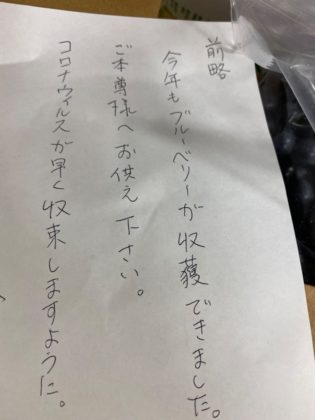 前略
今年もブルーベリーが収獲できました。
ご本尊様へお供え下さい。
コロナウィルスが早く収束しますように。